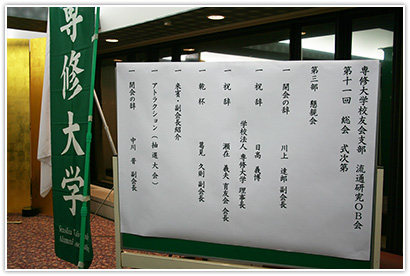 専修大学校友会支部 流通研究OB会
第十一回 総会 式次第
第三部 懇親会
一 開会の辞 川上 達郎 副会長
一 祝辞 日高 義博
学校法人 専修大学 理事長
一 祝辞 瀬在 義夫 育友会 会長
一 乾杯 葛見 久則 副会長
一 来賓・副会長紹介
一 アトラクション(抽選大会)
一 閉会の辞 中川 晋 副会長
専修大学
Senshu